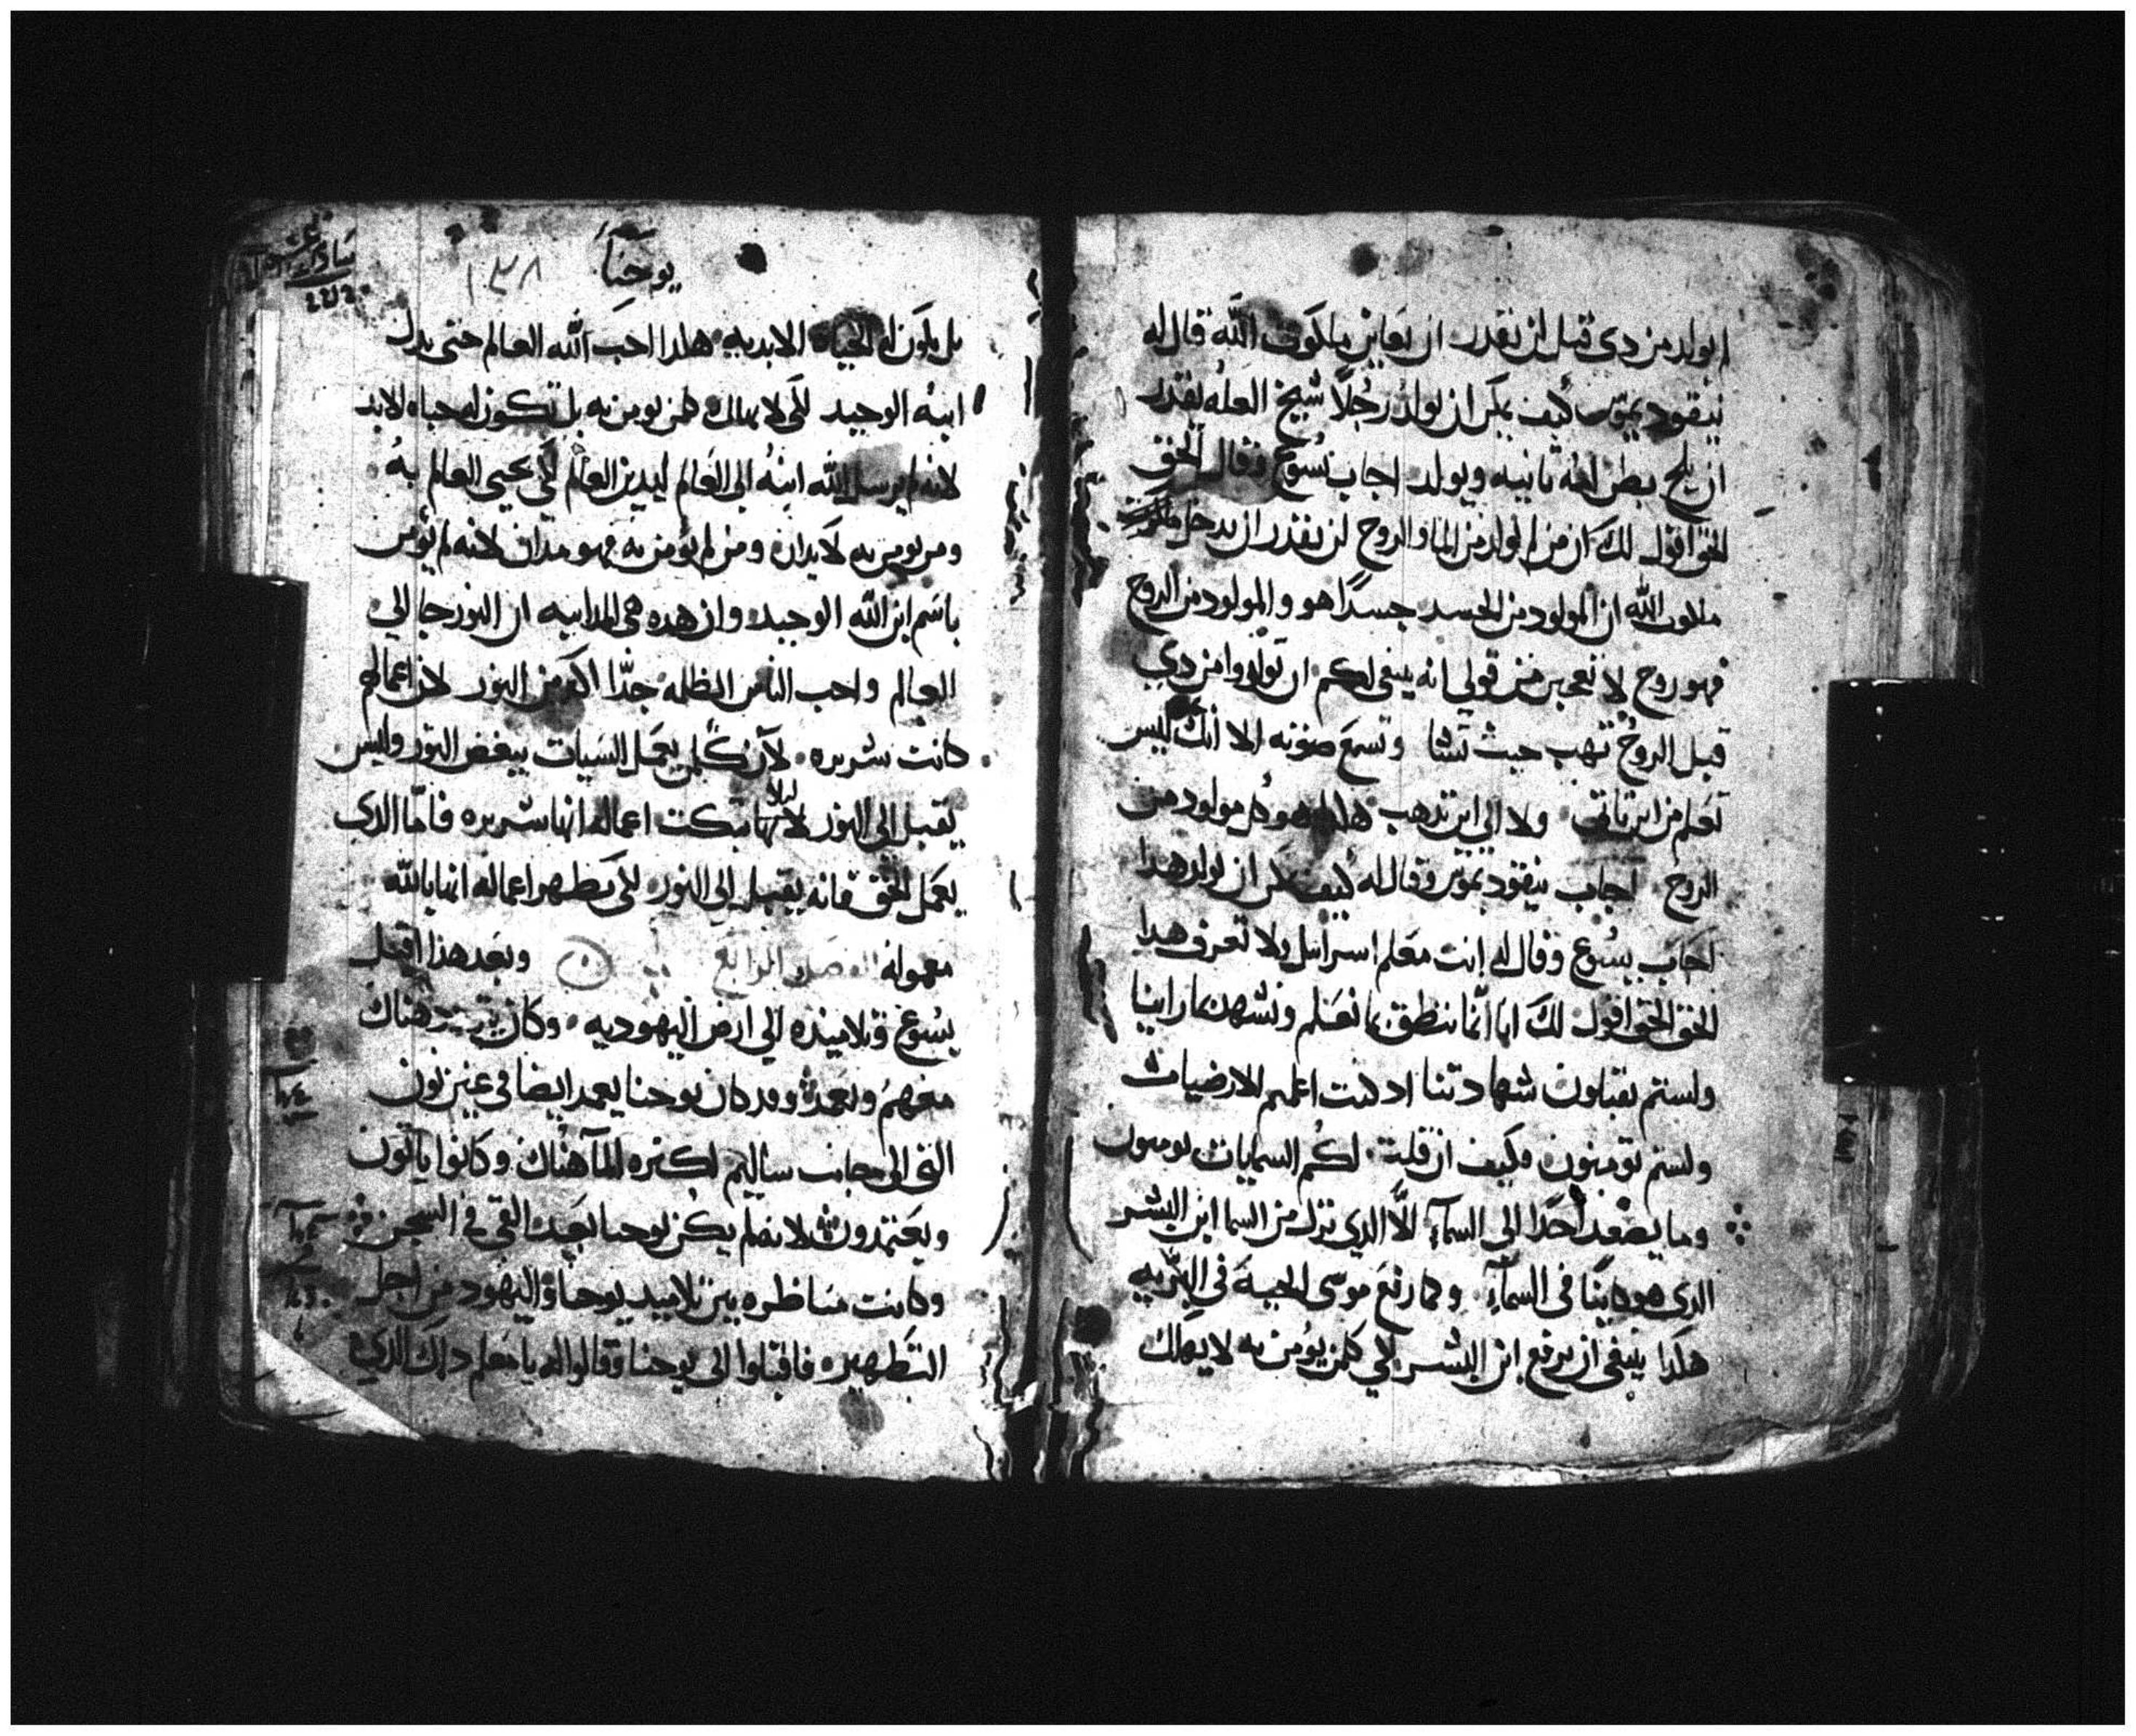 لم يولد من دي قبل لن يقدر ان يعاين ملكوت الله قال له
نيقوديموس كيف يمكن ان يولد رجلا شيخ العله يقدر
ان يلج بطن امه ثانيه ويولد اجاب يسوع وقال الحق
الحق اقول لك ان من لم يولد من الما والروح لن يقدر ان يدخل ملكوت
ملكوت الله ان المولود من الجسد جسدا هو والمولود من الروح
فهو روح لا تعجبن من قولي انه ينبغي لكم ان تولدوا من دي
قبل الروح تهب حيث تشا وتسمع صوته الا انك ليس
تعلم من اين تاتي ولا الي اين تذهب هكذا هو كل مولود من
الروح اجاب نيقوديموس وقال له كيف يمكن ان يولد هدا
اجاب يسوع وقال له انت معلم اسراييل ولا تعرف هدا
الحق الحق اقول لك انا انما ننطق بما نعلم ونشهد بما راينا
ولستم تقبلون شهادتنا اد كنت اعلمتم الارضيات
ولستم تومنون فكيف ان قلت لكم السماييات تومنون
وما يصعد احدا الي السمآء الّا الدي نزل من السما ابن البشر
الدي هو كاينًا في السمآء وكما رفع موسي الحية في البّريه
هكدا ينبغي ان يرفع ابن البشر لكي كلمن يؤمن به لا يهلك
يوحنا
١٣٨
بل يكون له الحياه الابديه هكدا احب الله العالم حتي بدل
ابنه الوحيد لكي لا يهلك كلمن يومن به بل تكون له حياه الابد
لانه لم يرسل الله ابنه الي العالم ليدين العالم لكي يحيي العالم به
ومن يومن به لا يدان ومن لم يؤمن به فهو مدان لانه لم يؤمن
باسم ابن الله الوحيد وان هده هي المداينه ان النور جا الي
العالم واحب الناس الظلمه جدّا اكتر من النور لان اعمالهم
كانت شريره لان كلمن يعمل السيات يبغض النور وليس
يقبل الي النور ليلا تبكت اعماله انها شريره فامّا الدي
يعمل الحق فانه يقبل الي النور لكي تظهر اعماله انها بالله
معموله الفصل الرابع وبعد هذا اقبل
يسوع وتلاميذه الي ارض اليهوديه وكان يتردد هناك
معهم ويعمد وقد كان يوحنا يعمد ايضا في عين نون
التي الي جانب ساليم لكتره المآ هناك وكانوا ياتون
ويعتمدون لانه لم يكن يوحنا بعد القي في السجن
وكانت مناظره بين تلاميد يوحنا واليهود من اجل
التطهير فاقبلوا الي يوحنا وقالوا له يا معلم دلك الدي